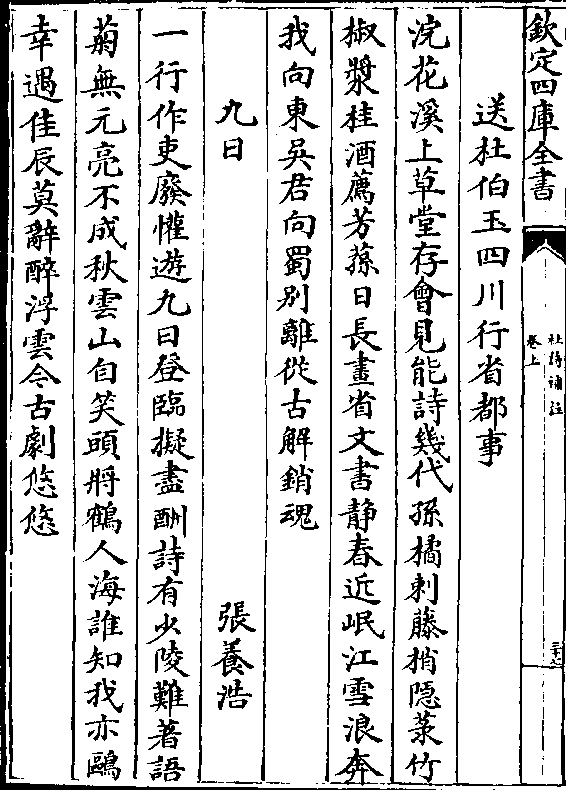 欽定四庫全書
卷上
送杜伯玉四川行省都事
浣花溪上草堂存會見能詩幾代孫橘刺藤梢隠菉竹
椒漿桂酒薦芳蓀日長畫省文書静春近岷江雪浪奔
我向東吳君向蜀別離從古解銷魂
九日 張養浩
一行作吏廢懽遊九日登臨擬盡酬詩有少陵難著語
菊無元亮不成秋雲山自笑頭將鶴人海誰知我亦鷗
幸遇佳辰莫辭醉浮雲今古劇悠悠